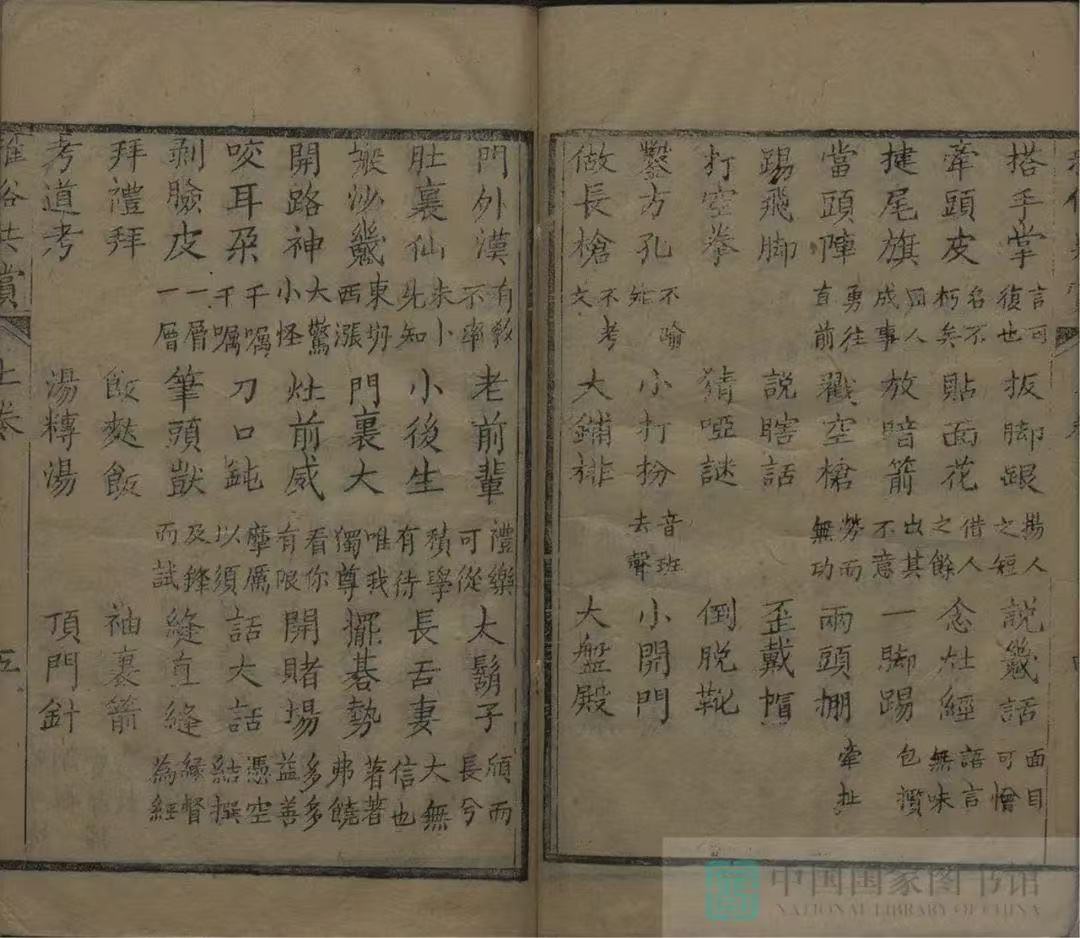 搭手掌 言可復也 扳脚跟 揚人之短 說㡬話 面目可憎
牽頭皮 名不朽矣 貼面花 借人之餘 念灶經 語言無味
揵尾旗 因人成事 放暗箭 出其不意 一脚踢 包攬
當頭陣 勇往直前 戳空槍 勞而無功 兩頭掤 牽扯
踢飛脚 說瞎話 歪戴帽
打空拳 猜啞謎 倒脫靴
鑿方孔 不踰 小打扮 音班去聲 小開門
做長槍 不考文 大鋪排 大盤殿
門外漢 有教不率 老前輩 禮樂可從 大鬍子 頎而長兮
肚裏仙 未卜先知 小後生 積學有待 長舌妻 大無信也
㸙沙㡬 東坍西漲 門裏大 唯我獨尊 擺碁勢 著著弗饒
開路神 大驚小怪 灶前威 看你有限 開賭場 多多益善
咬耳朶 千嘱千嘱 刀口鈍 摩厲以須 話大話 憑空結撰
剥臉皮 一層一層 筆頭獃 及鋒而試 縫直縫 緣督為經
拜禮拜 飯麩飯 袖裏箭
考道考 湯轉湯 頂門針
雅俗共賞 上卷 五
中国国家图书馆
NATIONAL LIBRARY OF CHINA